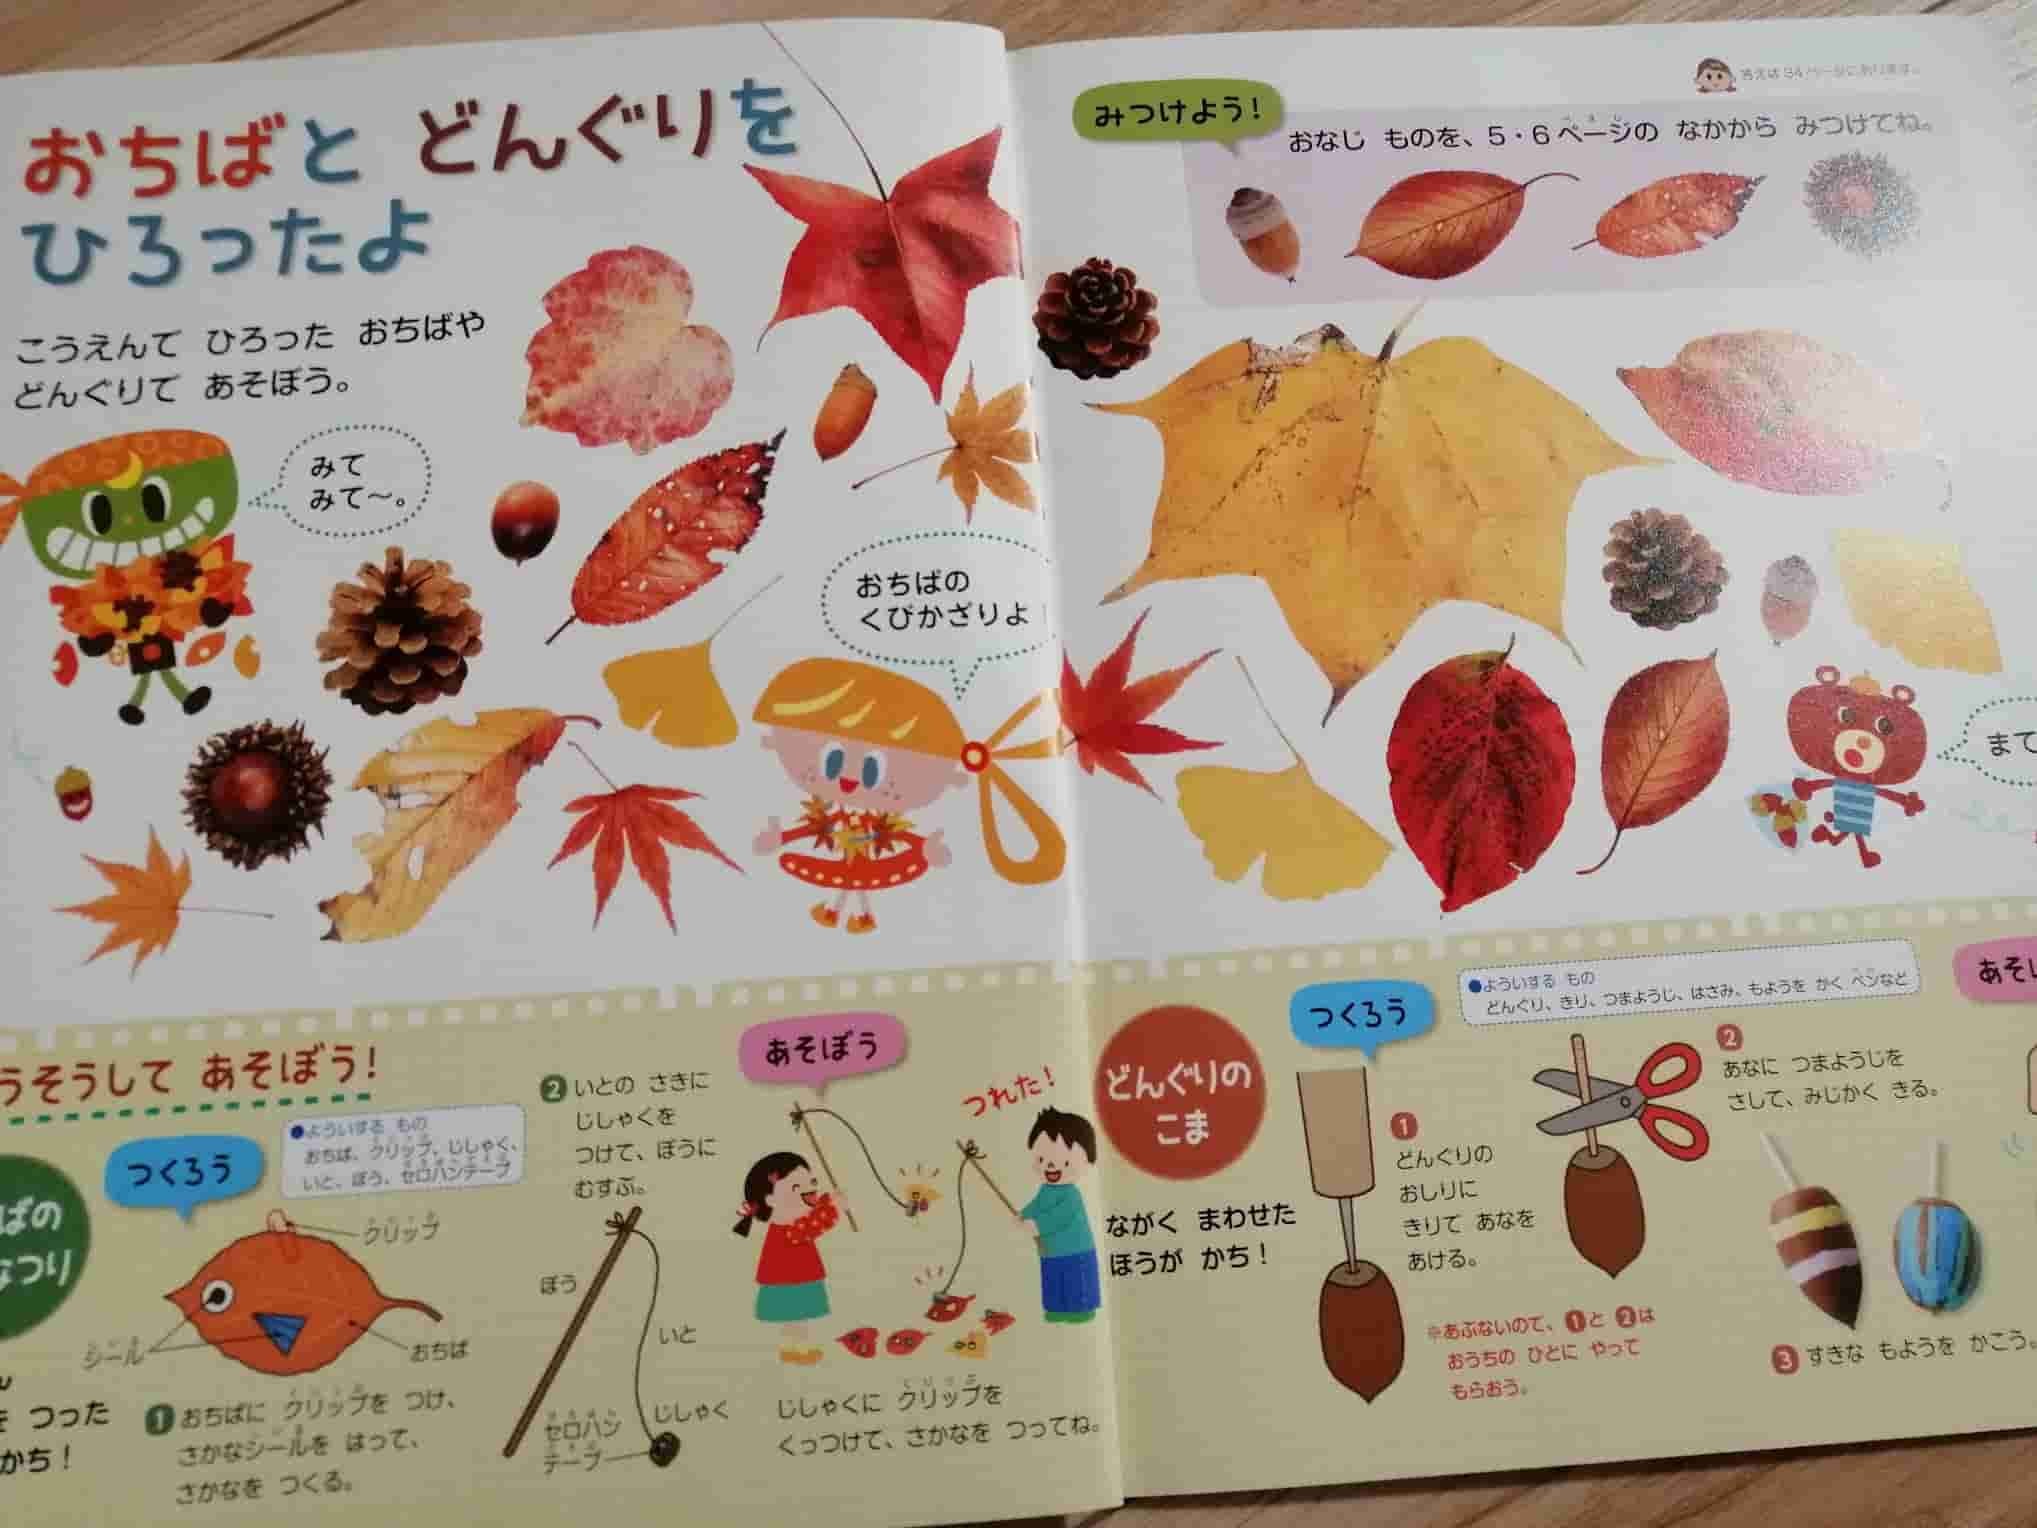 おちばと どんぐりを
ひろったよ
こうえんで ひろった おちばや
どんぐりで あそぼう。
みて
みて〜。
おちばの
くびかざりよ！
みつけよう！
おなじ ものを、5・6ページの なかから みつけてね。
答えは34ページにあります。
まて
うそうして あそぼう！
ばの
なつり
を つった
かち！
つくろう
●よういする もの
おちば、クリップ、じしゃく、
いと、ぼう、セロハンテープ
クリップ
シール
おちば
1 おちばに クリップを つけ、
さかなシールを はって、
さかなを つくる。
2 いとの さきに
じしゃくを
つけて、ぼうに
むすぶ。
ぼう
いと
セロハン
テープ
じしゃく
あそぼう
つれた！
じしゃくに クリップを
くっつけて、さかなを つってね。
どんぐりの
こま
ながく まわせた
ほうが かち！
つくろう
●よういする もの
どんぐり、きり、つまようじ、はさみ、もようを かく ペンなど
1
どんぐりの
おしりに
きりで あなを
あける。
2
あなに つまようじを
さして、みじかく きる。
※あぶないので、1と 2は
おうちの ひとに やって
もらおう。
3 すきな もようを かこう。
あそ